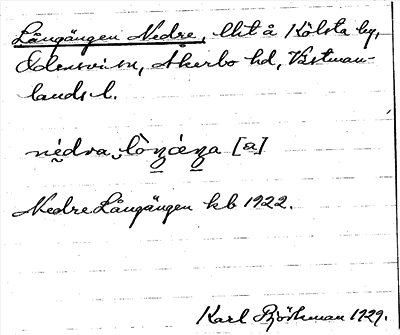 Långängen Nedre, lht å Kölsta by,
Odensvi sn, Åkerbo hd, Västman-
lands l.
Nedre Långängen kb 1922.
Karl Björkman 1929.